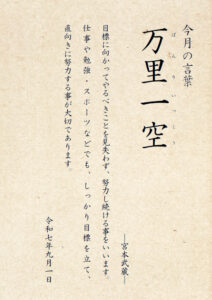 今月の言葉
万里一空
ばんりいっくう
―宮本武蔵―
目標に向かってやるべきことを見失わず、努力し続ける事をいいます。
仕事や勉強・スポーツなどでも、しっかり目標を立て、
直向きに努力する事が大切であります。
令和七年九月一日